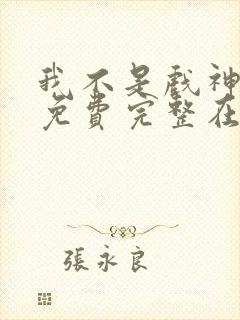 我不是戲神
免費完整在
張永良